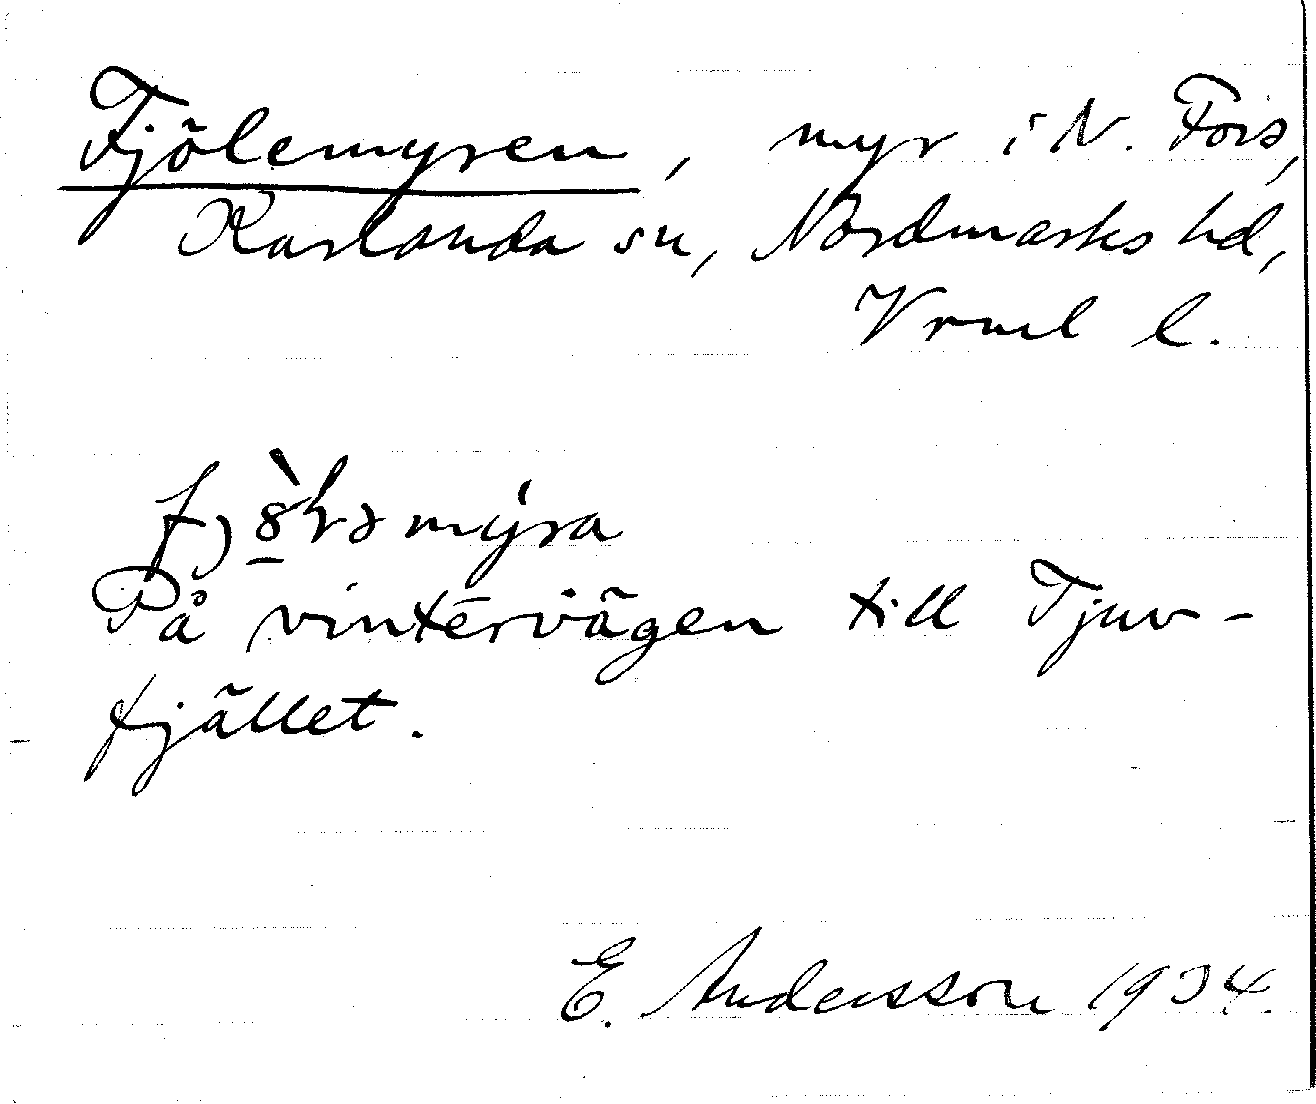 Fjölemyren, myr i N. Fors,
Karlanda sn, Nordmarks hd,
Vrml l.
På vintervägen till Tjuv-
fjället.
E. Andersson 1934.